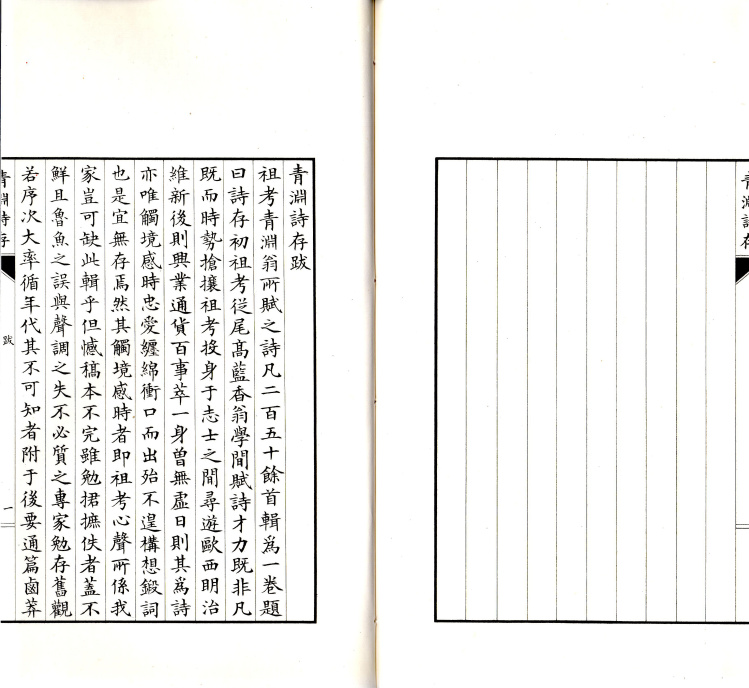 青淵詩存
青淵詩存跋
祖考青淵翁所賦之詩凡二百五十餘首輯爲一卷題
曰詩存初祖考從尾高藍香翁學間賦詩才力既非凡
既而時勢搶攘祖考投身于志士之間尋遊歐西明治
維新後則興業通貨百事萃一身曾無虛日則其爲詩
亦唯觸境感時忠愛纏綿衝口而出殆不遑構想鍛詞
也是宜無存焉然其觸境感時者即祖考心聲所係我
家豈可缺此輯乎但憾稿本不完雖勉捃摭佚者蓋不
鮮且魯魚之誤與聲調之失不必質之專家勉存舊觀
若序次大率循年代其不可知者附于後要通篇鹵莽
青淵詩存
跋
一